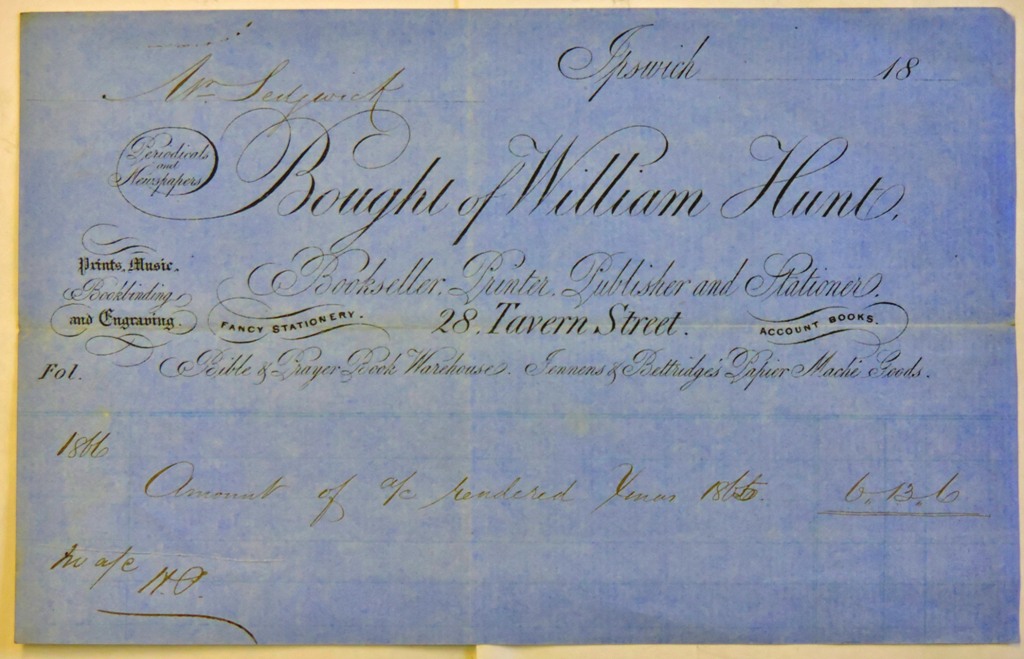 Ipswich 18
Mr Sedgwick
Periodicals
and
Newspapers
Bought of William Hunt.
Prints, Music.
Bookbinding
and Engraving.
Bookseller, Printer, Publisher and Stationer.
FANCY STATIONERY.
28. Tavern Street.
ACCOUNT BOOKS.
Fol.
Bible & Prayer Book Warehouse. Jennens & Bettridge's Papier Maché Goods.
1866
Amount of a/c rendered Xmas 1865. 6. 13. 6
a/c